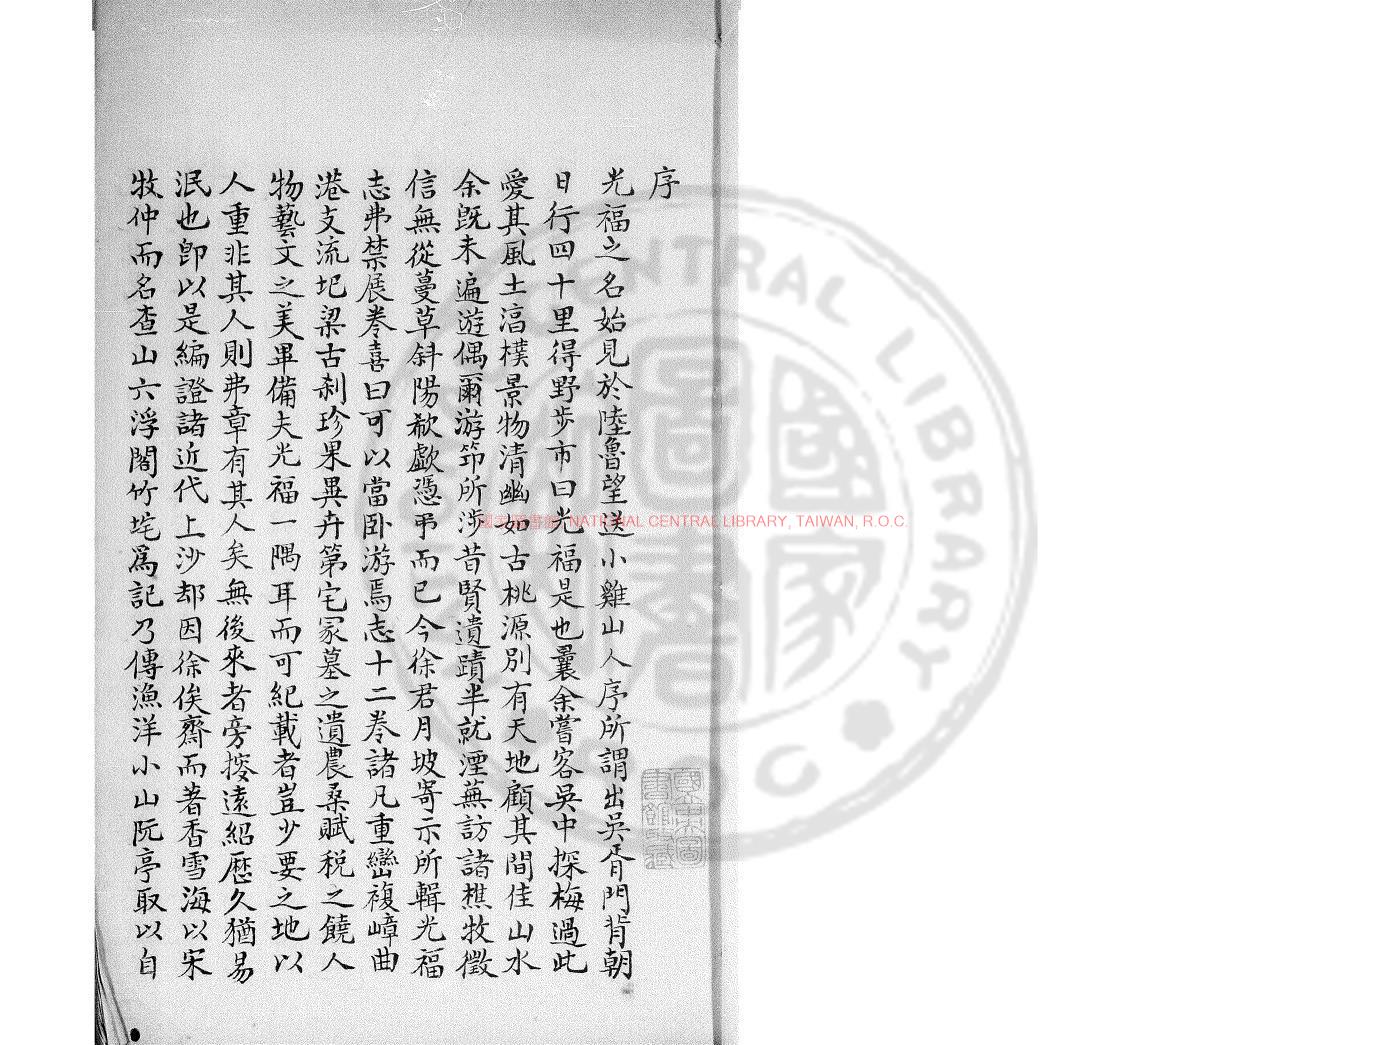 序
光福之名始見於陸魯望送小雞山人序所謂出吳胥門背朝
日行四十里得野步市曰光福是也曩余嘗客吳中探梅過此
愛其風土湻樸景物清幽如古桃源別有天地顧其間佳山水
余旣未遍遊偶爾游笻所涉昔賢遺蹟半就湮蕪訪諸樵牧徵
信無從蔓草斜陽欷歔憑弔而已今徐君月坡寄示所輯光福
志弗禁展卷喜曰可以當臥游焉志十二卷諸凡重巒複嶂曲
港支流圯梁古刹珍果異卉第宅冢墓之遺農桑賦税之饒人
物藝文之美畢備夫光福一隅耳而可紀載者豈少要之地以
人重非其人則弗章有其人矣無後來者旁搜遠紹歷久猶易
泯也卽以是編證諸近代上沙却因徐俟齋而著香雪海以宋
牧仲而名查山六浮閣竹垞爲記乃傳漁洋小山阮亭取以自
國家圖書館 NATIONAL CENTRAL LIBRARY, TAIWAN, R.O.C.
CENTRAL LIBRARY